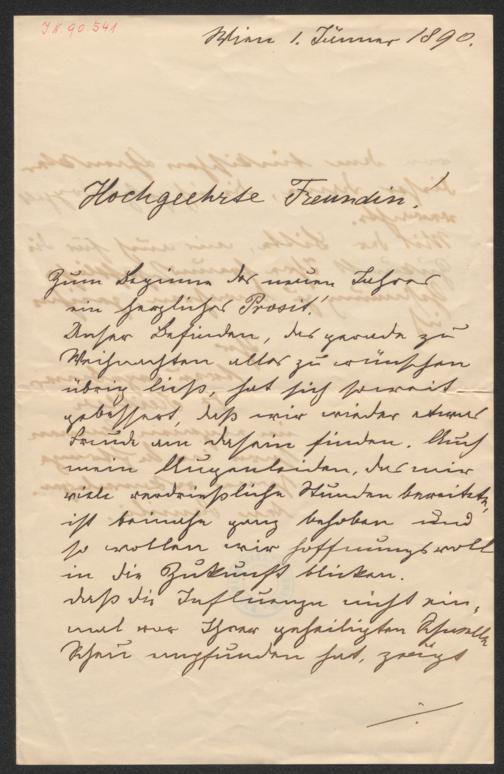 I.N. 90.541
Wien 1. Jänner 1890.
Hochgeehrte Freundin!
Zum Beginne des neuen Jahres
ein herzliches Prosit!
Unser Befinden, das gerade zu
Weihnachten alles zu wünschen
übrig ließ, hat sich soweit
gebessert, daß wir wieder etwas
Freude am Dasein finden. Auch
mein Augenleiden, das mir
viele verdrießliche Stunden bereitete,
ist beinahe ganz behoben und
so wollen wir hoffnungsvoll
in die Zukunft blicken.
Daß die Influenza nicht ein-
mal vor Ihrer geheiligten Schwelle
Scheu empfunden hat, zeigt